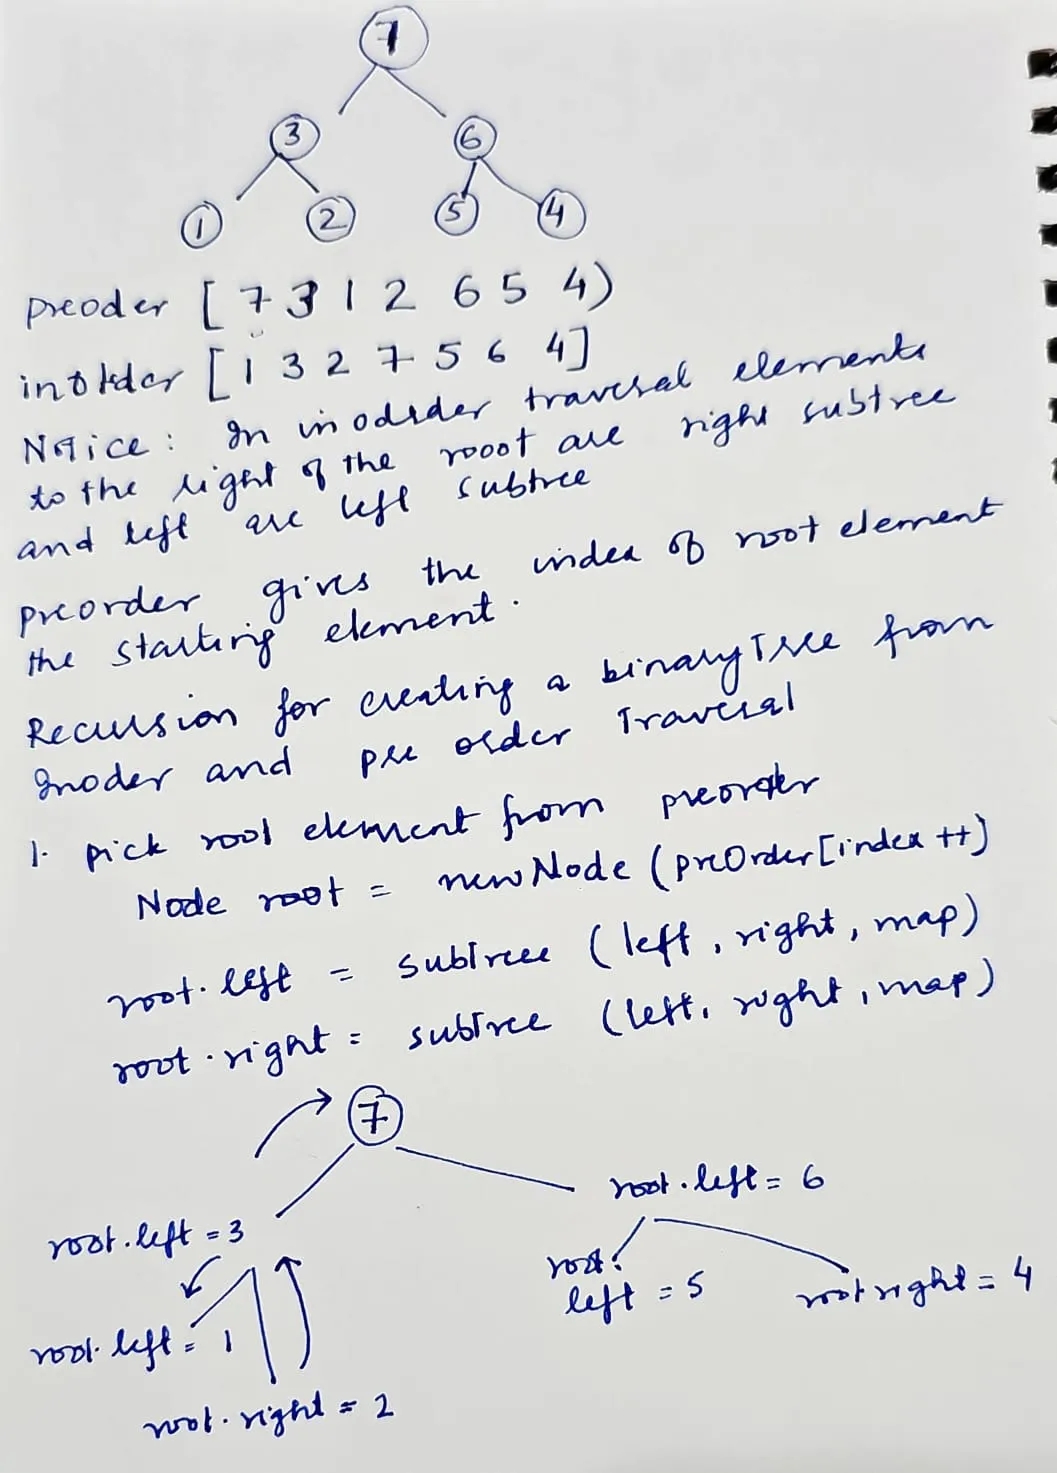 7
3 6
1 2 5 4
preoder [ 7 3 1 2 6 5 4)
inorder [ 1 3 2 7 5 6 4]
Notice : In inodrder traversal elements
to the right of the rooot are right subtree
and left are left subtree
preorder gives the index of root element
the starting element.
Recursion for creating a binaryTree from
Inoder and pre order Traversal
1. pick root element from preorder
Node root = new Node (preOrder[index ++)
root. left = subTreee ( left , right, map)
root . right = subTree (left, right , map)
7
root . left = 6
root . left = 3
root.
left = 5
root right = 4
root. left = 1
root . right = 2